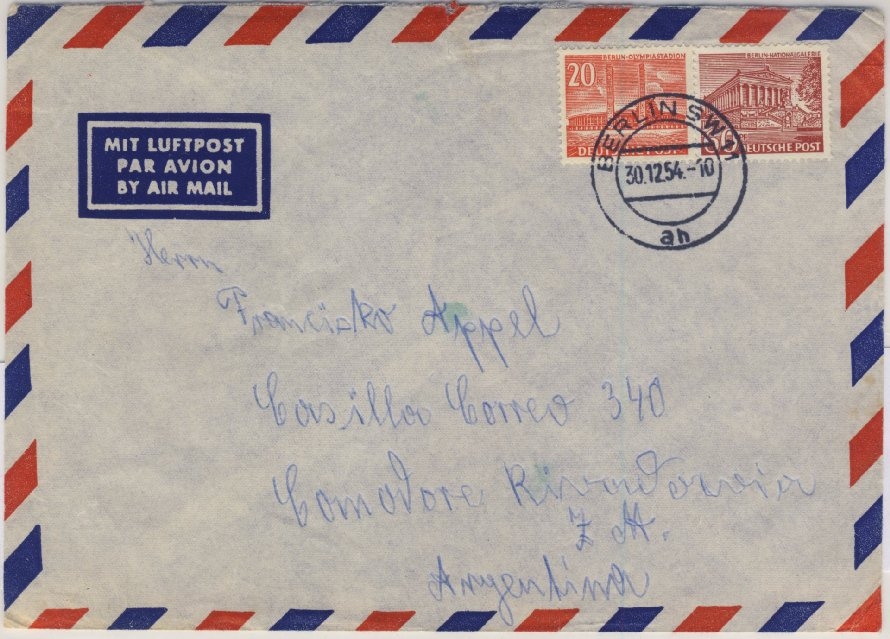 20
BERLIN-OLYMPIASTADION
DEUTSCHE POST
BERLIN-NATIONALGALERIE
DEUTSCHE POST
BERLIN SW11
30.12.54.-10
ah
MIT LUFTPOST
PAR AVION
BY AIR MAIL
Herrn
Francisko Appel
Casilla Correo 340
Comodore Rivadavia
Z M.
Argentina